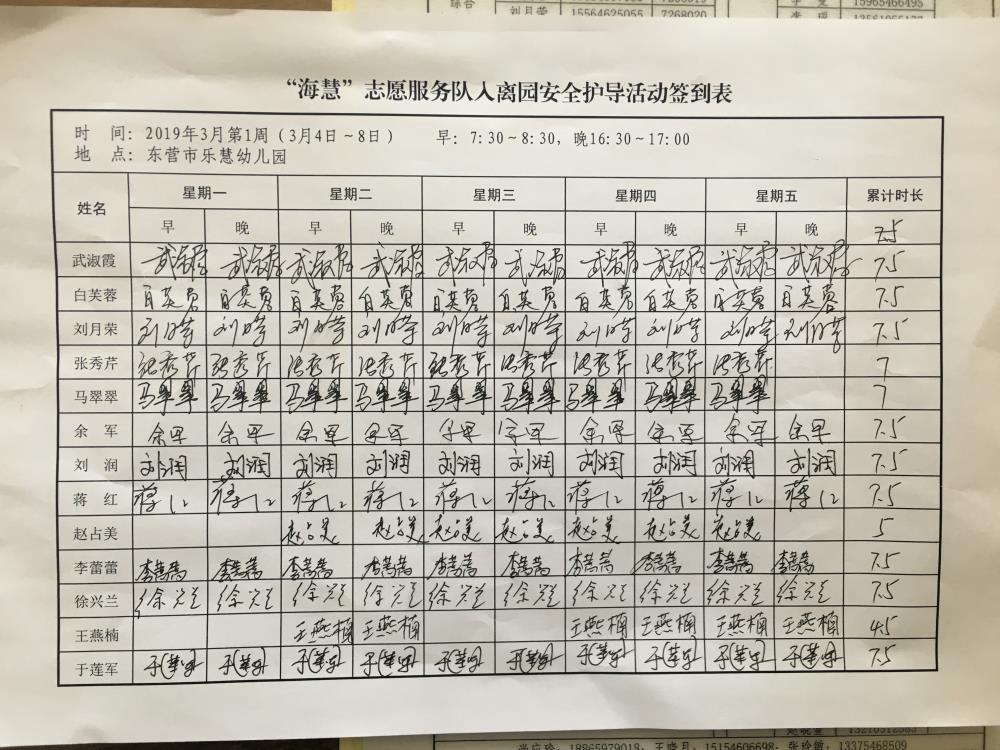 综合
刘月荣 15564625055 7268020
15965466495
“海慧”志愿服务队入离园安全护导活动签到表
时 间：2019年3月第1周（3月4日～8日） 早：7:30～8:30，晚16:30～17:00
地 点：东营市乐慧幼儿园
姓名 星期一 星期二 星期三 星期四 星期五 累计时长
早 晚 早 晚 早 晚 早 晚 早 晚 7.5
武淑霞 武淑霞 武淑霞 武淑霞 武淑霞 武淑霞 武淑霞 武淑霞 武淑霞 武淑霞 武淑霞 7.5
白芙蓉 白芙蓉 白芙蓉 白芙蓉 白芙蓉 白芙蓉 白芙蓉 白芙蓉 白芙蓉 白芙蓉 白芙蓉 7.5
刘月荣 刘月荣 刘月荣 刘月荣 刘月荣 刘月荣 刘月荣 刘月荣 刘月荣 刘月荣 刘月荣 7.5
张秀芹 张秀芹 张秀芹 张秀芹 张秀芹 张秀芹 张秀芹 张秀芹 张秀芹 张秀芹 7
马翠翠 马翠翠 马翠翠 马翠翠 马翠翠 马翠翠 马翠翠 马翠翠 马翠翠 马翠翠 7
余 军 余军 余军 余军 余军 余军 余军 余军 余军 余军 余军 7.5
刘 润 刘润 刘润 刘润 刘润 刘润 刘润 刘润 刘润 刘润 刘润 7.5
蒋 红 蒋红 蒋红 蒋红 蒋红 蒋红 蒋红 蒋红 蒋红 蒋红 蒋红 7.5
赵占美 赵占美 赵占美 赵占美 赵占美 赵占美 赵占美 赵占美 5
李蕾蕾 李蕾蕾 李蕾蕾 李蕾蕾 李蕾蕾 李蕾蕾 李蕾蕾 李蕾蕾 李蕾蕾 李蕾蕾 李蕾蕾 7.5
徐兴兰 徐兴兰 徐兴兰 徐兴兰 徐兴兰 徐兴兰 徐兴兰 徐兴兰 徐兴兰 徐兴兰 徐兴兰 7.5
王燕楠 王燕楠 王燕楠 王燕楠 王燕楠 王燕楠 王燕楠 4.5
于莲军 于莲军 于莲军 于莲军 于莲军 于莲军 于莲军 于莲军 于莲军 于莲军 于莲军 7.5
18865979018；王晓月：15154606698；张玲敏：13375468509